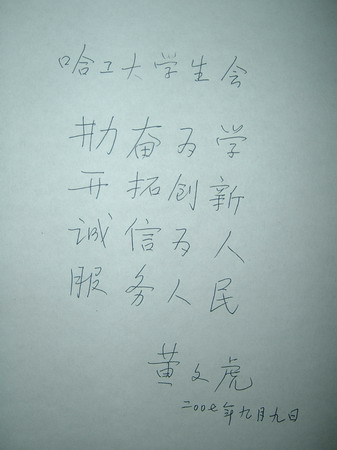 哈工大学生会
勤奋为学
开拓创新
诚信为人
服务人民
黄文虎
二00七年九月九日